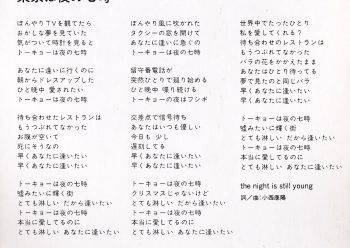 東京は夜の七時
ぼんやりTVを観てたら
おかしな夢を見ていた
気がついて時計を見ると
トーキョーは夜の七時
あなたに逢いに行くのに
朝からドレスアップした
ひと晩中 愛されたい
トーキョーは夜の七時
待ち合わせたレストランは
もうつぶれてなかった
お腹が空いて
死にそうなの
早くあなたに逢いたい
早くあなたに逢いたい
トーキョーは夜の七時
嘘みたいに輝く街
とても淋しい だから逢いたい
トーキョーは夜の七時
本当に愛してるのに
とても淋しい あなたに逢いたい
ぼんやり風に吹かれた
タクシーの窓を開けて
あなたに逢いに急ぐの
トーキョーは夜の七時
留守番電話が
突然ひとりで廻り始める
ひと晩中 喋り続ける
トーキョーの夜はフシギ
交差点で信号待ち
あなたはいつも優しい
今日も少し
遅刻してる
早くあなたに逢いたい
早くあなたに逢いたい
トーキョーは夜の七時
クリスマスじゃないけど
とても淋しい だから逢いたい
トーキョーは夜の七時
本当に愛してるのに
とても淋しい あなたに逢いたい
世界中でたったひとり
私を愛してくれる?
待ち合わせのレストランは
もうつぶれてなかった
バラの花をかかえたまま
あなたはひとり待ってる
夢で見たのと同じバラ
早くあなたに逢いたい
早くあなたに逢いたい
トーキョーは夜の七時
嘘みたいに輝く街
とても淋しい だから逢いたい
トーキョーは夜の七時
本当に愛してるのに
とても淋しい あなたに逢いたい
the night is still young
詞/曲:小西康陽